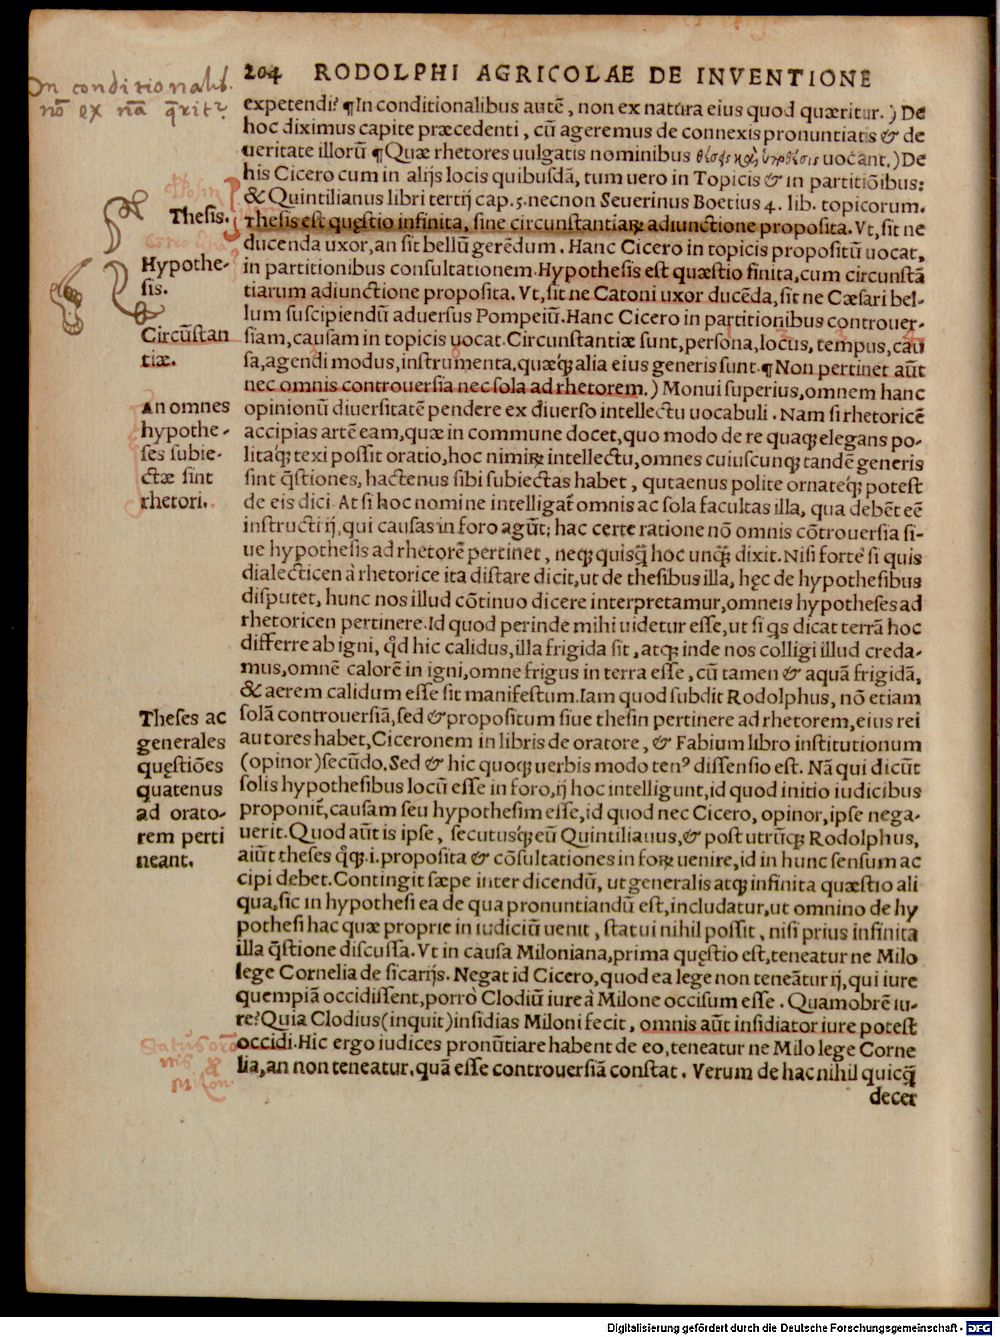 204 RODOLPHI AGRICOLAE DE INVENTIONE
In conditionalib.
nō ex nā q̄rit᷑
expetendi? ¶In conditionalibus autē, non ex natura eius quod quæritur.) De
hoc diximus capite præcedenti, cū ageremus de connexis pronuntiatis & de
ueritate illorū ¶Quæ rhetores uulgatis nominibus θέσεις καὶ ὑποθέσεις uocant.) De
his Cicero cum in alijs locis quibusdā, tum uero in Topicis & in partitiōibus:
& Quintilianus libri tertij cap. 5. necnon Seuerinus Boetius 4. lib. topicorum.
Thesis.
Thesis est quęstio infinita, sine circunstantiaꝝ adiunctione proposita. Vt, sit ne
ducenda uxor, an sit bellū gerēdum. Hanc Cicero in topicis propositū uocat,
Hypothe-
sis.
in partitionibus consultationem. Hypothesis est quæstio finita, cum circunstā
tiarum adiunctione proposita. Vt, sit ne Catoni uxor ducēda, sit ne Cæsari bel-
lum suscipiendū aduersus Pompeiū. Hanc Cicero in partitionibus controuer-
Circūstan
tiæ.
siam, causam in topicis uocat. Circunstantiæ sunt, persona, locus, tempus, cau
sa, agendi modus, instrumenta, quæq; alia eius generis sunt. ¶Non pertinet aūt
nec omnis controuersia nec sola ad rhetorem.) Monui superius, omnem hanc
An omnes
hypothe-
ses subie-
ctæ sint
rhetori.
opinionū diuersitatē pendere ex diuerso intellectu uocabuli. Nam si rhetoricē
accipias artē eam, quæ in commune docet, quo modo de re quaq; elegans po-
litaq; texi possit oratio, hoc nimiꝝ intellectu, omnes cuiuscunq; tandē generis
sint q̄stiones, hactenus sibi subiectas habet, qutaenus polite ornateq; potest
de eis dici. At si hoc nomine intelligat᷑ omnis ac sola facultas illa, qua debēt eē
instructi ij, qui causas in foro agūt; hac certe ratione nō omnis cōtrouersia si-
ue hypothesis ad rhetorē pertinet, neq; quisq̄ hoc unq̄ dixit. Nisi forte si quis
dialecticen à rhetorice ita distare dicit, ut de thesibus illa, hęc de hypothesibus
disputet, hunc nos illud cōtinuo dicere interpretamur, omneis hypotheses ad
rhetoricen pertinere. Id quod perinde mihi uidetur esse, ut si qs dicat terrā hoc
differre ab igni, q̄d hic calidus, illa frigida sit, atq; inde nos colligi illud creda-
mus, omnē calorē in igni, omne frigus in terra esse, cū tamen & aquā frigidā,
& aerem calidum esse sit manifestum. Iam quod subdit Rodolphus, nō etiam
Theses ac
generales
quęstiōes
quatenus
ad orato-
rem perti
neant.
solā controuersiā, sed & propositum siue thesin pertinere ad rhetorem, eius rei
autores habet, Ciceronem in libris de oratore, & Fabium libro institutionum
(opinor) secūdo. Sed & hic quoq; uerbis modo tenꝰ dissensio est. Nā qui dicūt
solis hypothesibus locū esse in foro, ij hoc intelligunt, id quod initio iudicibus
proponit᷑, causam seu hypothesim esse, id quod nec Cicero, opinor, ipse nega-
uerit. Quod aūt is ipse, secutusq; eū Quintilianus, & post utrūq; Rodolphus,
aiūt theses q̄q; .i. proposita & cōsultationes in foꝝ uenire, id in hunc sensum ac
cipi debet. Contingit sæpe inter dicendū, ut generalis atq; infinita quæstio ali
qua, sic in hypothesi ea de qua pronuntiandū est, includatur, ut omnino de hy
pothesi hac quæ proprie in iudiciū uenit, statui nihil possit, nisi prius infinita
illa q̄stione discussa. Vt in causa Miloniana, prima quęstio est, teneatur ne Milo
lege Cornelia de sicarijs. Negat id Cicero, quod ea lege non teneātur ij, qui iure
quempiā occidissent, porrò Clodiū iure à Milone occisum esse. Quamobrē iu-
re? Quia Clodius (inquit) insidias Miloni fecit, omnis aūt insidiator iure potest
occidi. Hic ergo iudices pronūtiare habent de eo, teneatur ne Milo lege Corne
lia, an non teneatur, quā esse controuersiā constat. Verum de hac nihil quicq̄
decer
Milon.
Digitalisierung gefördert durch die Deutsche Forschungsgemeinschaft - DFG